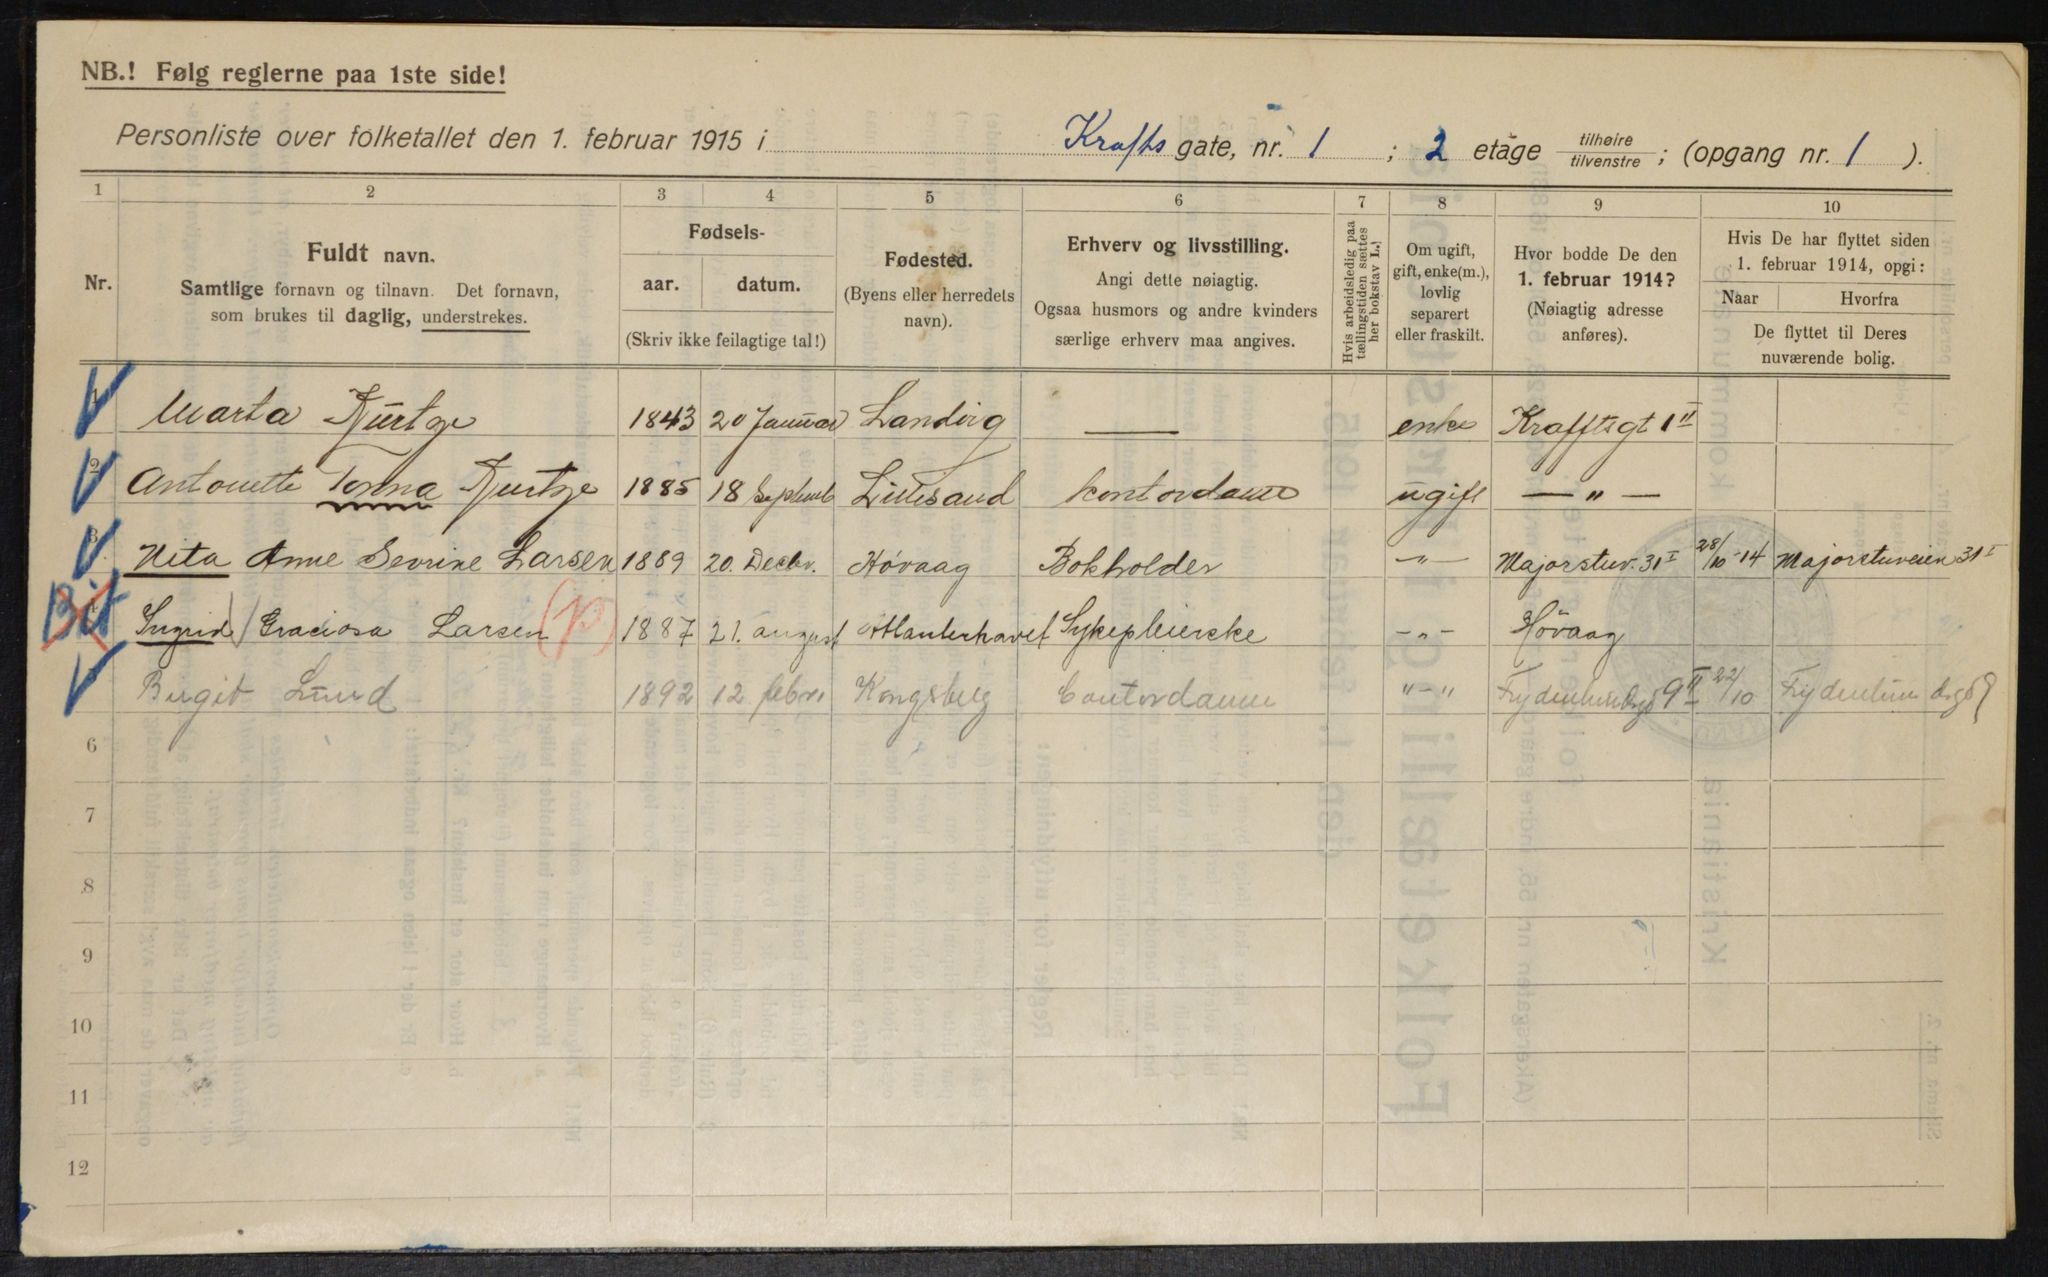 NB.! Følg reglerne paa 1ste side!
Personliste over folketallet den 1. februar 1915 i Krafts gate, nr. 1 ; 2 etage tilhøire / tilvenstre ; (opgang nr. 1 ).
1 2 3 4 5 6 7 8 9 10
Nr.
Fuldt navn.
Samtlige fornavn og tilnavn. Det fornavn,
som brukes til daglig, understrekes.
Fødsels-
aar. datum.
(Skriv ikke feilagtige tal!)
Fødested.
(Byens eller herredets
navn).
Erhverv og livsstilling.
Angi dette nøiagtig.
Ogsaa husmors og andre kvinders
særlige erhverv maa angives.
Hvis arbeidsledig paa
tællingstiden sættes
her bokstav L.)
Om ugift,
gift, enke(m.),
lovlig
separert
eller fraskilt.
Hvor bodde De den
1. februar 1914?
(Nøiagtig adresse
anføres).
Hvis De har flyttet siden
1. februar 1914, opgi:
Naar Hvorfra
De flyttet til Deres
nuværende bolig.
1 Marta 1843 20 Januar Landvig — enke Krafftsgt 1 II
2 Antonette Tonna 1885 18 Septemb Lillesand Kontordame ugift — " —
3 Nita Anne Sevrine Larsen 1889 20. Decbr. Høvaag Bokholder -"- Majorstuv. 31 I 28/10-14 Majorstuveien 31 I
4 Bit Ingrid Graciosa Larsen (p) 1887 21. august Atlanterhavet Sykepleierske -"- Høvaag
Birgit Lund 1892 12 febr. Kongsberg Contordame "-" Frydenlundsgt 9 II 22/10 Frydenlundsgt 9
6
7
8
9
10
11
12